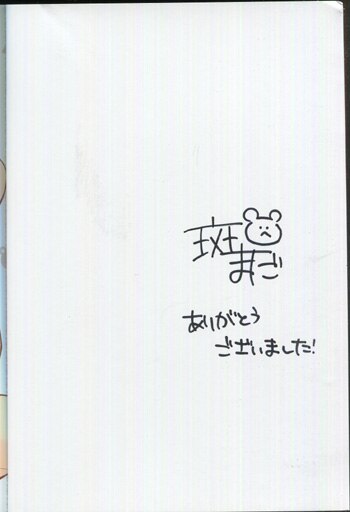 斑
まご
ありがとう
ございました!